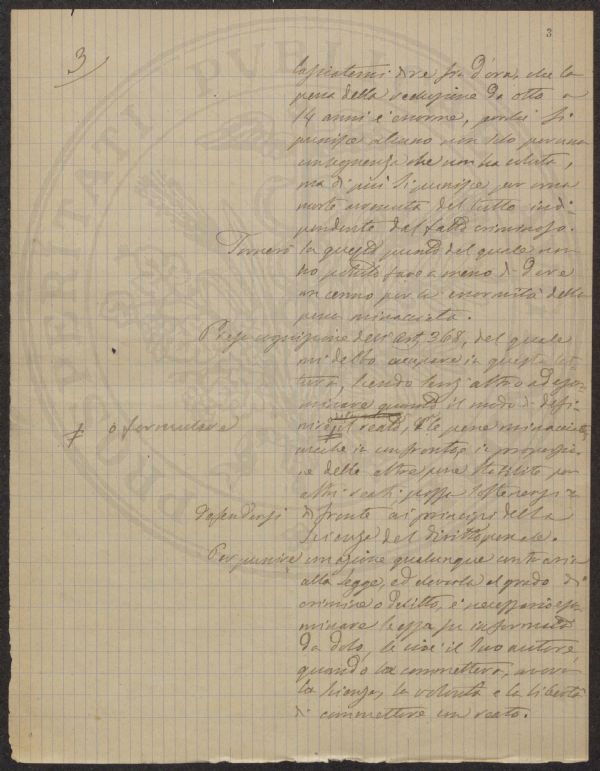 3
3
lasciatemi dire fin d'ora, che la
pena della reclusione da otto a
14 anni è enorme, perchè si
punisce alcuno non solo per una
conseguenza che non ha voluta,
ma di più si punisce per una
morte avvenuta del tutto indi-
pendente dal fatto criminoso.
Tornerò su questo punto del quale non
ho potuto fare a meno di dare
un cenno per la enormità della
pena minacciata.
Presa cognizione dell'Art. 368, del quale
mi debbo occupare in questa
, senz'altro ad esa-
minare il modo di defi-
nire o formulare il reato, e le pene minacciate
anche in confronto e in proporzio-
ne delle altre pene stabilite per
altri reati possa sostenersi e
difendersi di fronte ai principi della
Scienza del diritto penale.
Per punire un'azione qualunque contraria
alla legge, ed elevarla al grado di
crimine o delitto, è necessario esa-
minare se essa fu informata
da dolo, se cioè il suo autore
quando la commetteva, aveva
la scienza, la volontà e la libertà
di commettere un reato.
PROSPERITATI PVBLI